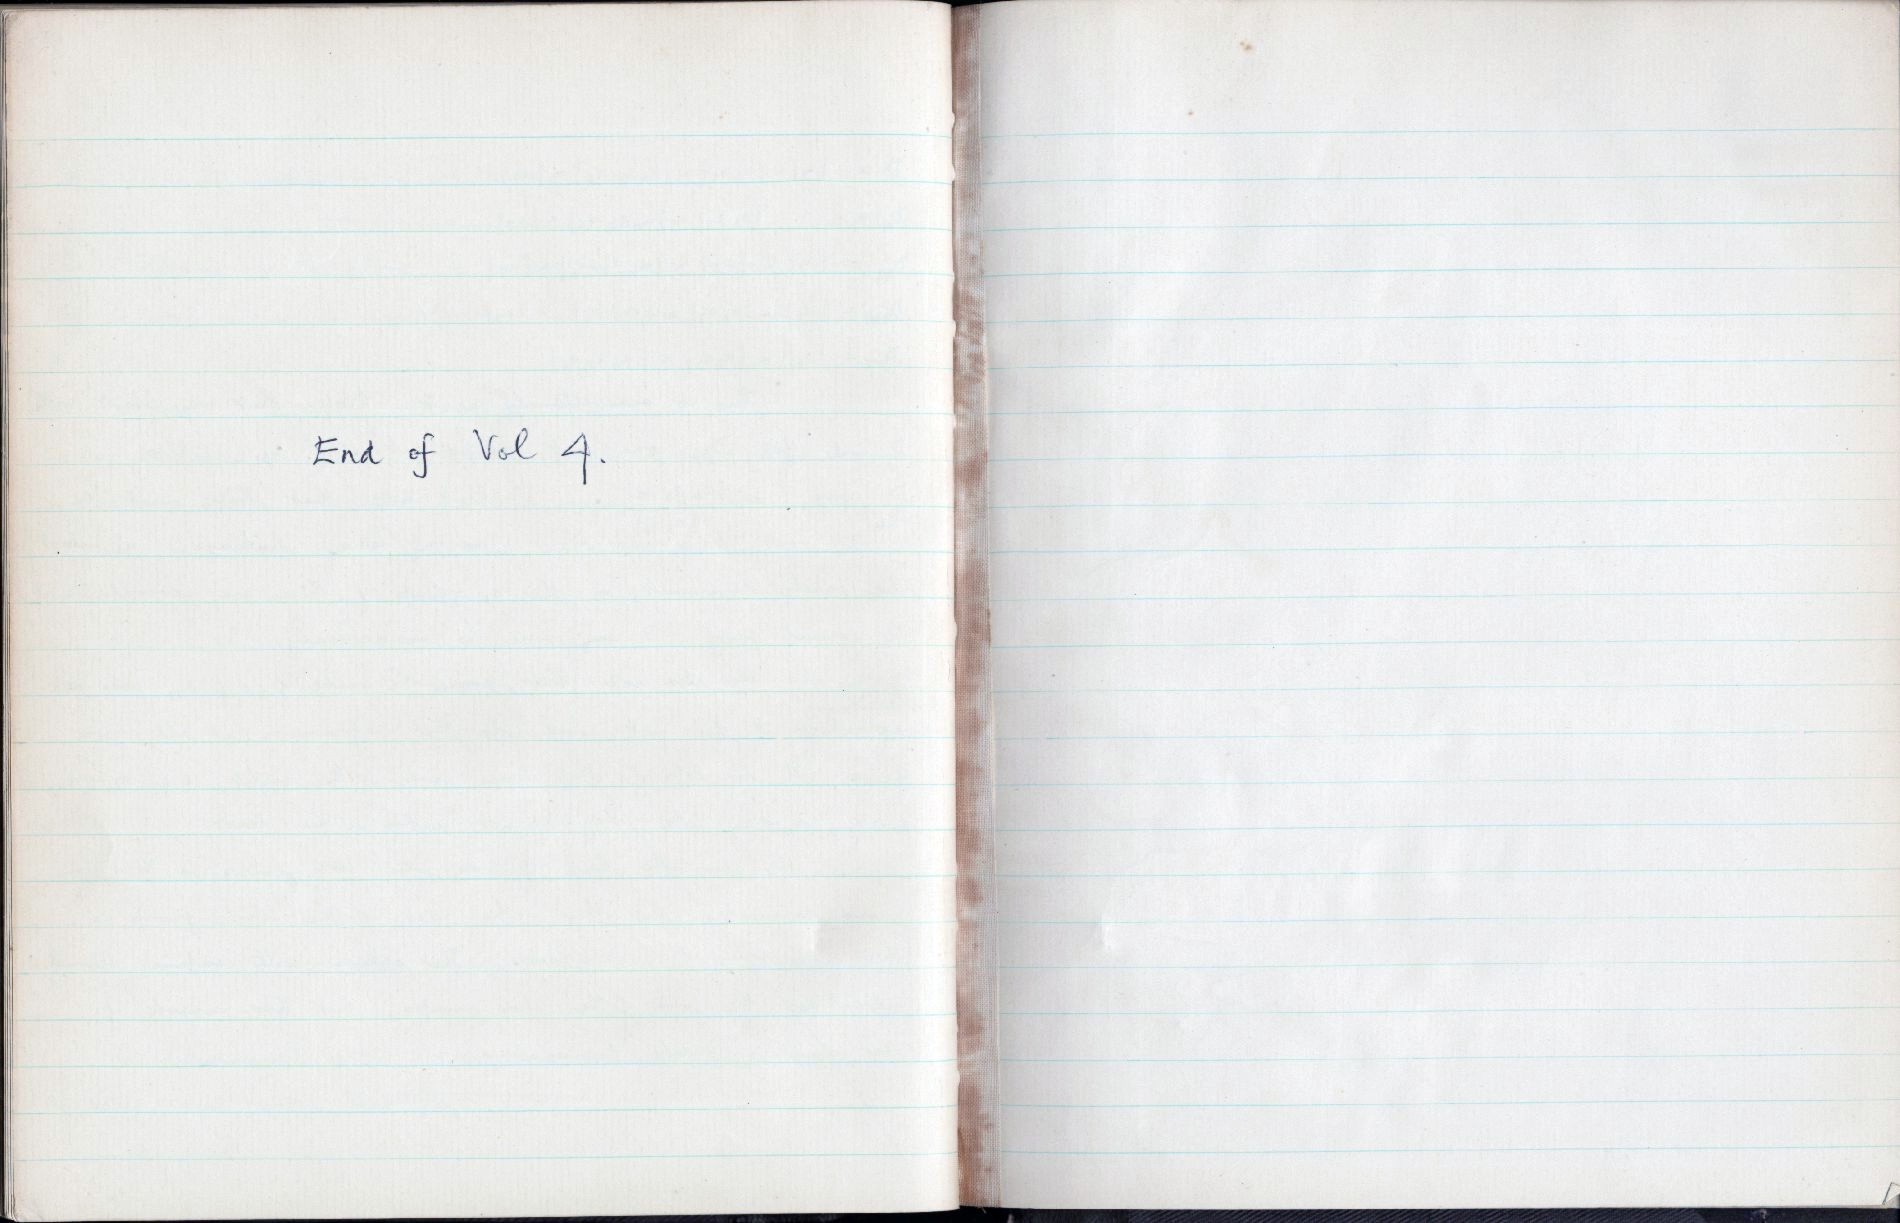 End of Vol 4.